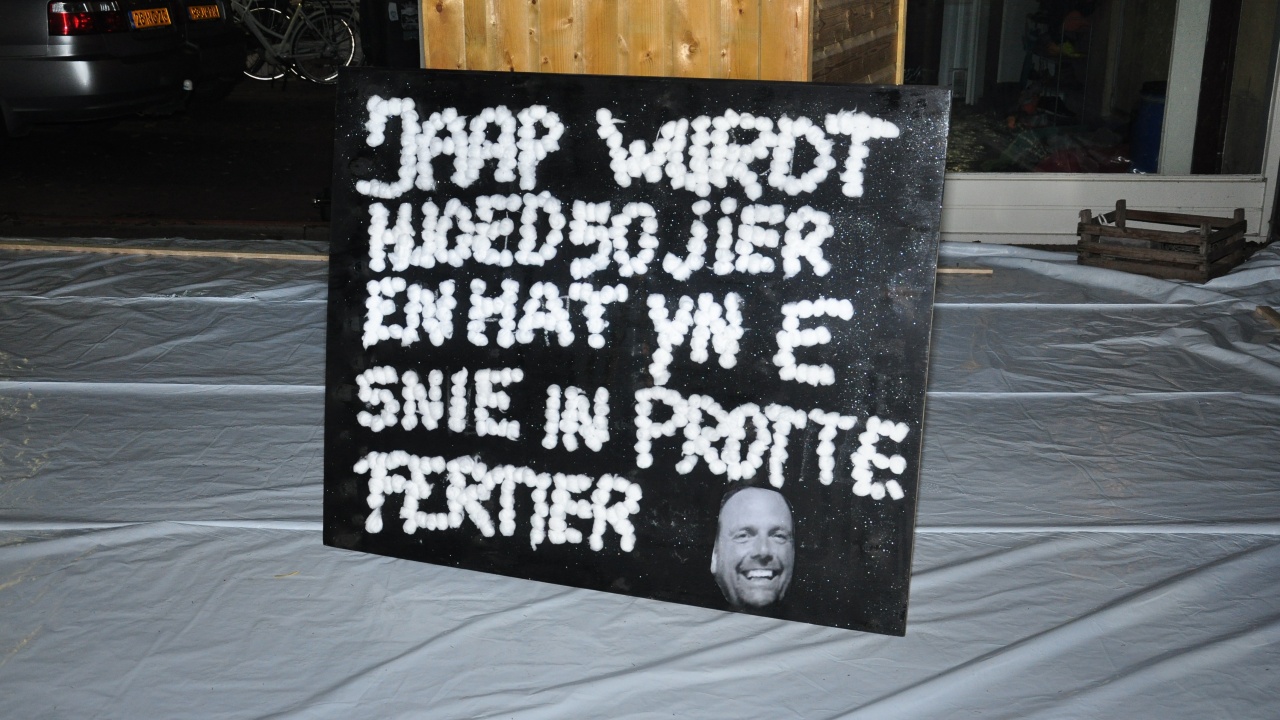 JAAP WURDT
HJOED 50 JIER
EN HAT YN E
SNIE IN PROTTE
FERTIER